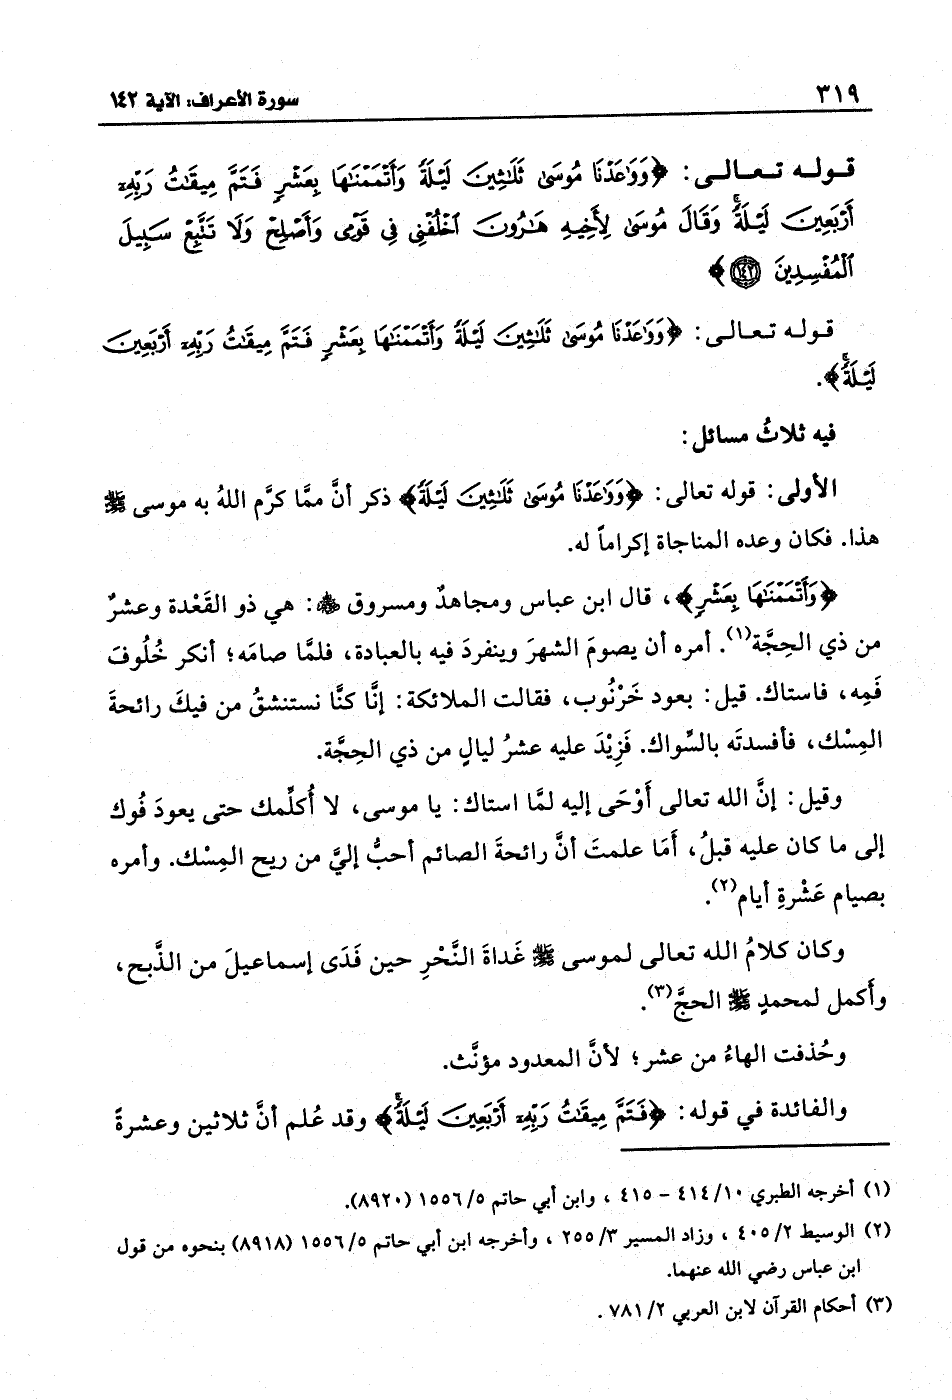 ٣١٩
سورة الأعراف: الآية ١٤٢
قوله تعالى: ﴿وَوَٰعَدْنَا مُوسَىٰ ثَلَٰثِينَ لَيْلَةً وَأَتْمَمْنَٰهَا بِعَشْرٍ فَتَمَّ مِيقَٰتُ رَبِّهِۦٓ
أَرْبَعِينَ لَيْلَةً ۚ وَقَالَ مُوسَىٰ لِأَخِيهِ هَٰرُونَ ٱخْلُفْنِى فِى قَوْمِى وَأَصْلِحْ وَلَا تَتَّبِعْ سَبِيلَ
ٱلْمُفْسِدِينَ ١٤٢﴾
قوله تعالى: ﴿وَوَٰعَدْنَا مُوسَىٰ ثَلَٰثِينَ لَيْلَةً وَأَتْمَمْنَٰهَا بِعَشْرٍ فَتَمَّ مِيقَٰتُ رَبِّهِۦٓ أَرْبَعِينَ
لَيْلَةً ۚ﴾.
فيه ثلاثُ مسائل:
الأولى: قوله تعالى: ﴿وَوَٰعَدْنَا مُوسَىٰ ثَلَٰثِينَ لَيْلَةً﴾ ذكر أنَّ ممَّا كرَّم اللهُ به موسى ﷺ
هذا. فكان وعده المناجاة إكراماً له.
﴿وَأَتْمَمْنَٰهَا بِعَشْرٍ﴾، قال ابن عباس ومجاهدٌ ومسروق ﵃: هي ذو القَعْدة وعشرٌ
من ذي الحِجَّة(١). أمره أن يصومَ الشهرَ وينفردَ فيه بالعبادة، فلمَّا صامَه؛ أنكر خُلُوفَ
فَمِه، فاستاك. قيل: بعود خَرْنُوب، فقالت الملائكة: إنَّا كنَّا نستنشقُ من فيكَ رائحةَ
المِسْك، فأفسدتَه بالسِّواك. فَزِيْدَ عليه عشرُ ليالٍ من ذي الحِجَّة.
وقيل: إنَّ الله تعالى أَوْحَى إليه لمَّا استاك: يا موسى، لا أُكلِّمك حتى يعودَ فُوك
إلى ما كان عليه قبلُ، أَمَا علمتَ أنَّ رائحةَ الصائم أحبُّ إليَّ من ريح المِسْك. وأمره
بصيام عَشْرةِ أيام(٢).
وكان كلامُ الله تعالى لموسى ﷺ غَداةَ النَّحْرِ حين فَدَى إسماعيلَ من الذَّبح،
وأَكمل لمحمدٍ ﷺ الحجَّ(٣).
وحُذفت الهاءُ من عشر؛ لأنَّ المعدود مؤنَّث.
والفائدة في قوله: ﴿فَتَمَّ مِيقَٰتُ رَبِّهِۦٓ أَرْبَعِينَ لَيْلَةً ۚ﴾ وقد عُلم أنَّ ثلاثين وعشرةً
(١) أخرجه الطبري ١٠/ ٤١٤ - ٤١٥ ، وابن أبي حاتم ٥/ ١٥٥٦ (٨٩٢٠).
(٢) الوسيط ٢/ ٤٠٥ ، وزاد المسير ٣/ ٢٥٥ ، وأخرجه ابن أبي حاتم ٥/ ١٥٥٦ (٨٩١٨) بنحوه من قول
ابن عباس رضي الله عنهما.
(٣) أحكام القرآن لابن العربي ٢/ ٧٨١ .